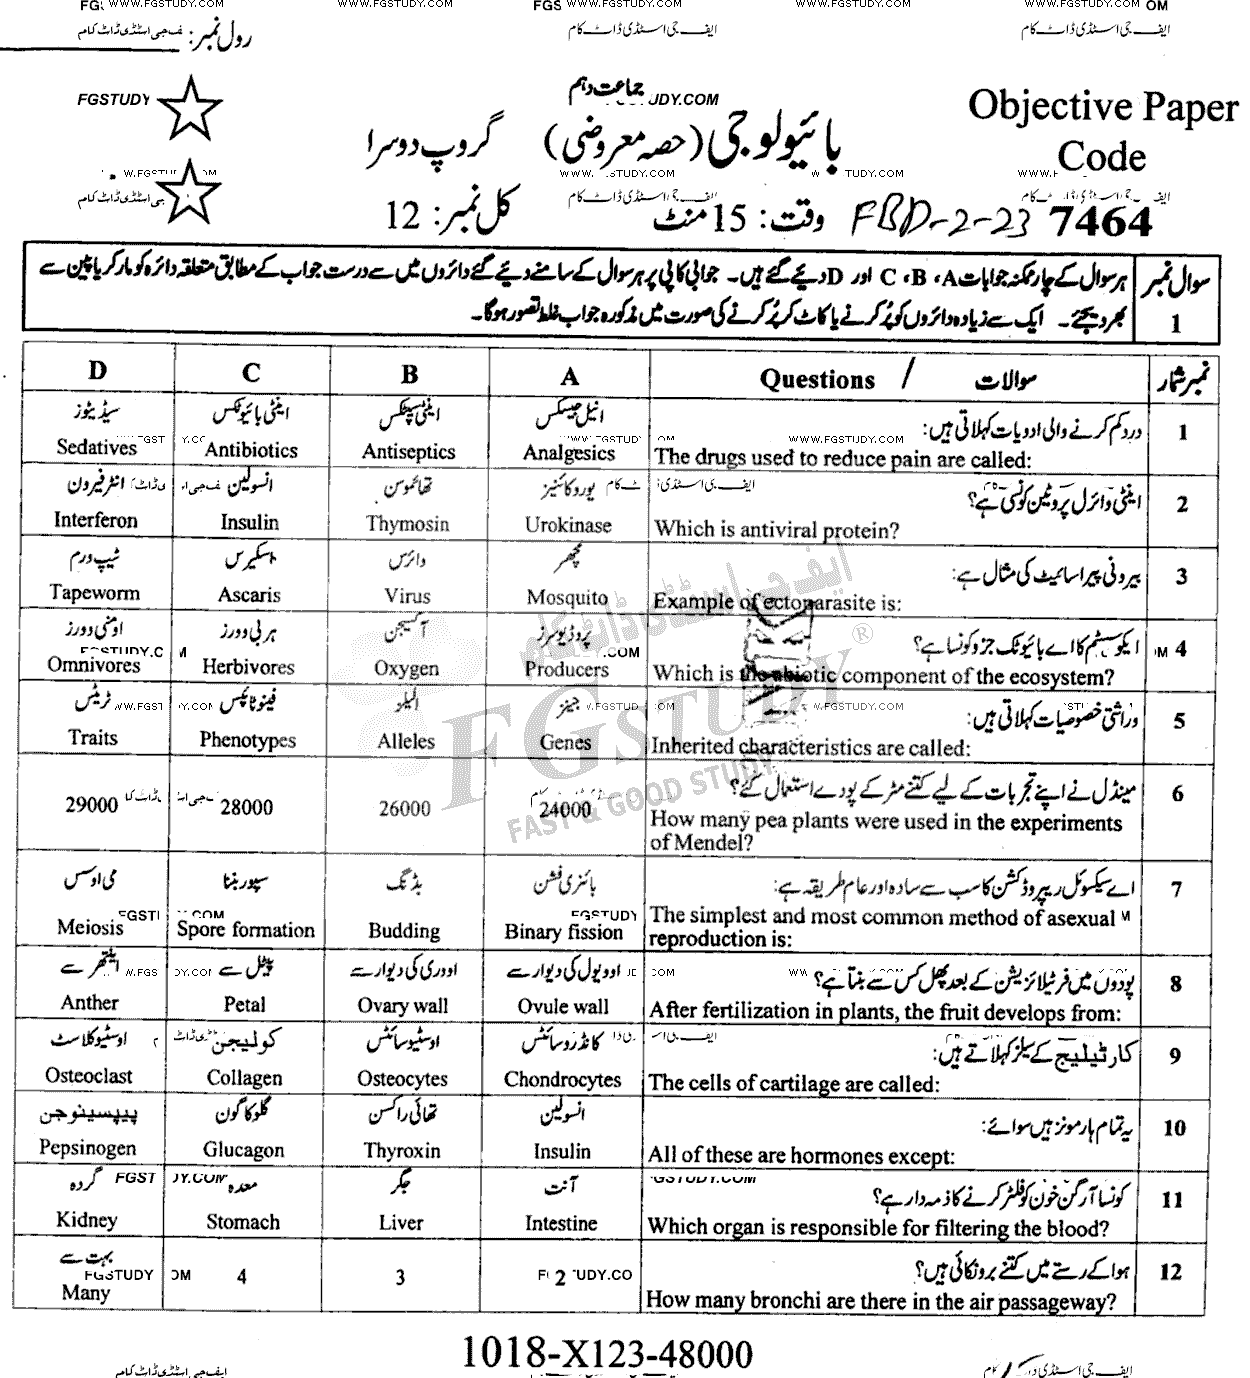 WWW.FGSTUDY.COM WWW.FGSTUDY.COM WWW.FGSTUDY.COM
ایف جی اسٹڈی ڈاٹ کام ایف جی اسٹڈی ڈاٹ کام
رول نمبر:
جماعت دہم
FGSTUDY
Objective Paper
Code
بائیولوجی (حصہ معروضی) گروپ دوسرا
7464 FBD-2-23 وقت: 15 منٹ کل نمبر: 12
سوال نمبر 1
ہر سوال کے چار ممکنہ جوابات A، B، C اور D دیئے گئے ہیں۔ جوابی کاپی پر ہر سوال کے سامنے دیئے گئے دائروں میں سے درست جواب کے مطابق متعلقہ دائرہ کو مارکر یا پین سے
بھر دیجئے۔ ایک سے زیادہ دائروں کو پُر کرنے یا کاٹ کر پُر کرنے کی صورت میں مذکورہ جواب غلط تصور ہوگا۔
D C B A Questions / سوالات نمبر شمار
سیڈیٹوز اینٹی بائیوٹکس اینٹی سپٹکس انیل جیسکس درد کم کرنے والی ادویات کہلاتی ہیں: 1
Sedatives Antibiotics Antiseptics Analgesics The drugs used to reduce pain are called:
انٹرفیرون انسولین تھائموسن یوروکائنیز اینٹی وائرل پروٹین کونسی ہے؟ 2
Interferon Insulin Thymosin Urokinase Which is antiviral protein?
ٹیپ ورم اسکیرس وائرس مچھر بیرونی پیراسائیٹ کی مثال ہے: 3
Tapeworm Ascaris Virus Mosquito Example of ectoparasite is:
اومنی وورز ہربی وورز آکسیجن پروڈیوسرز ایکوسسٹم کا اے بائیوٹک جزو کونسا ہے؟ 4
Omnivores Herbivores Oxygen Producers Which is the abiotic component of the ecosystem?
ٹریٹس فینوٹائپس الیلز جینز وراثتی خصوصیات کہلاتی ہیں: 5
Traits Phenotypes Alleles Genes Inherited characteristics are called:
29000 28000 26000 24000 مینڈل نے اپنے تجربات کے لیے کتنے مٹر کے پودے استعمال کئے؟ 6
How many pea plants were used in the experiments
of Mendel?
می اوسس سپور بننا بڈنگ بائنری فشن اے سیکسوئل ریپروڈکشن کا سب سے سادہ اور عام طریقہ ہے: 7
Meiosis Spore formation Budding Binary fission The simplest and most common method of asexual
reproduction is:
اینتھر سے پیٹل سے اووری کی دیوار سے اوویول کی دیوار سے پودوں میں فرٹیلائزیشن کے بعد پھل کس سے بنتا ہے؟ 8
Anther Petal Ovary wall Ovule wall After fertilization in plants, the fruit develops from:
اوسٹیوکلاسٹ کولیجن اوسٹیوسائٹس کانڈروسائٹس کارٹیلیج کے سیلز کہلاتے ہیں: 9
Osteoclast Collagen Osteocytes Chondrocytes The cells of cartilage are called:
پیپسینوجن گلوکاگون تھائی راکسن انسولین یہ تمام ہارمونز ہیں سوائے: 10
Pepsinogen Glucagon Thyroxin Insulin All of these are hormones except:
گردہ معدہ جگر آنت کونسا آرگن خون کو فلٹر کرنے کا ذمہ دار ہے؟ 11
Kidney Stomach Liver Intestine Which organ is responsible for filtering the blood?
بہت سے 4 3 2 ہوا کے رستے میں کتنے برونکائی ہیں؟ 12
Many How many bronchi are there in the air passageway?
FGSTUDY
FAST & GOOD STUDY
1018-X123-48000
ایف جی اسٹڈی ڈاٹ کام